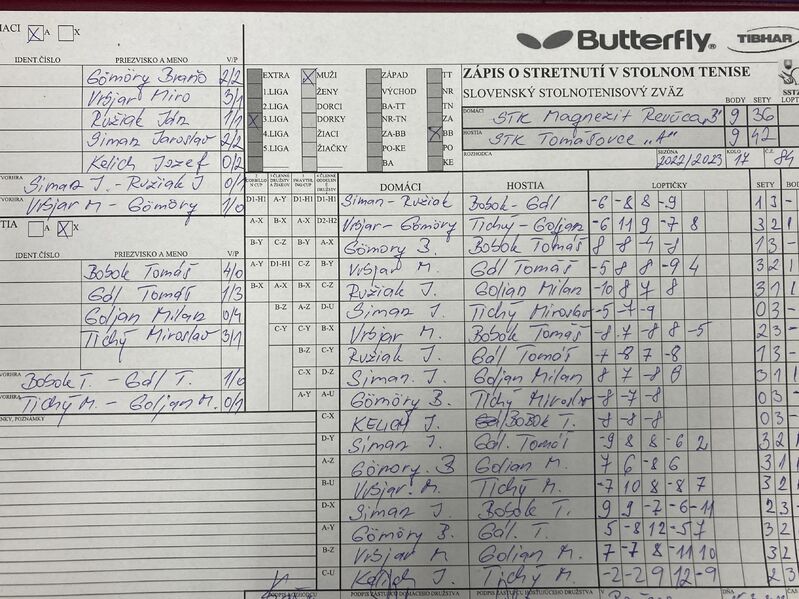 Butterfly TIBHAR
ZÁPIS O STRETNUTÍ V STOLNOM TENISE
SLOVENSKÝ STOLNOTENISOVÝ ZVÄZ
DOMÁCI STK Magnezit Revúca "B" BODY 9 SETY 36
HOSTIA STK Tomášovce "A" 9 42
ROZHODCA SEZÓNA 2022/2023 KOLO 17 Č.Z. 84
EXTRA MUŽI ZÁPAD TT
1.LIGA ŽENY VÝCHOD NR
2.LIGA DORCI BA-TT TN
3.LIGA DORKY NR-TN ZA
4.LIGA ŽIACI ZA-BB BB
5.LIGA ŽIAČKY PO-KE PO
BA KE
A X
IDENT.ČÍSLO PRIEZVISKO A MENO V/P
Gömöry Braňo 2/2
Vršjar Miro 3/1
Ružiak Ján 1/1
Siman Jaroslav 2/2
Kelich Jozef 0/2
Siman J. - Ružiak J 0/1
Vršjar M - Gömöry 1/0
A X
IDENT.ČÍSLO PRIEZVISKO A MENO V/P
Bobok Tomáš 4/0
Gdl Tomáš 1/3
Goljan Milan 0/4
Tichý Miroslav 3/1
Bobok T. - Gdl T. 1/0
Tichý M. - Goljan M. 0/1
DOMÁCI HOSTIA LOPTIČKY SETY BODY
D1-H1 A-Y D1-H1 D1-H1 Siman - Ružiak Bobok - Gdl -6 -8 8 -9 1 3 -
A-X B-X A-X D2-H2 Vršjar - Gömöry Tichý - Goljan -6 11 9 -7 8 3 2 1
B-Y C-Z B-Y A-X Gömöry B. Bobok Tomáš 8 -8 -4 -8 1 3 -
A-Y D1-H1 C-Z B-Y Vršjar M. Gdl Tomáš -5 8 8 -9 4 3 2 1
B-X A-X B-X C-Z Ružiak J. Goljan Milan -10 8 7 8 3 1 1
B-Z A-Z D-U Siman J. Tichý Miroslav -5 -7 -9 0 3 -
C-Y C-Y B-X Vršjar M. Bobok Tomáš -8 7 -8 8 -5 2 3 -
B-Z C-Y Ružiak J. Gdl Tomáš 1 3 -
C-X D-Z Siman J. Goljan Milan 8 7 -8 8 3 1 1
A-Y A-U Gömöry B. Tichý Miroslav -8 -7 -8 0 3 -
C-X KELICH J. BOBOK T. -8 -8 -8 0 3 -
D-Y Siman J. Gdl Tomáš -9 8 8 -6 2 3 2 1
A-Z Gömöry B Goljan M. 7 6 -8 6 3 1 1
B-U Vršjar M. Tichý M. -7 10 8 -8 7 3 2 1
D-X Siman J. Bobok T. 9 9 -7 -6 -11 2 3 -
A-Y Gömöry B. Gdl. T. 5 -8 12 -5 7 3 2
B-Z Vršjar M Goljan M. 7 -7 8 -11 10 3 2
C-U Kelich J. Tichý M. -2 -2 9 12 -9 2 3
PODPIS ROZHODCU PODPIS ZÁSTUPCU DOMÁCEHO DRUŽSTVA PODPIS ZÁSTUPCU HOSŤUJÚCEHO DRUŽSTVA V DŇA